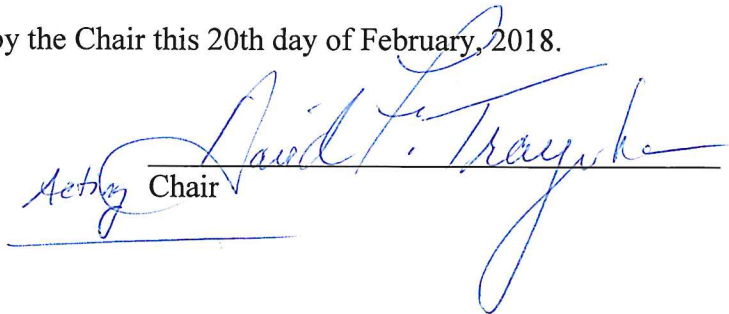 by the Chair this 20th day of February, 2018.
David F.
Acting Chair